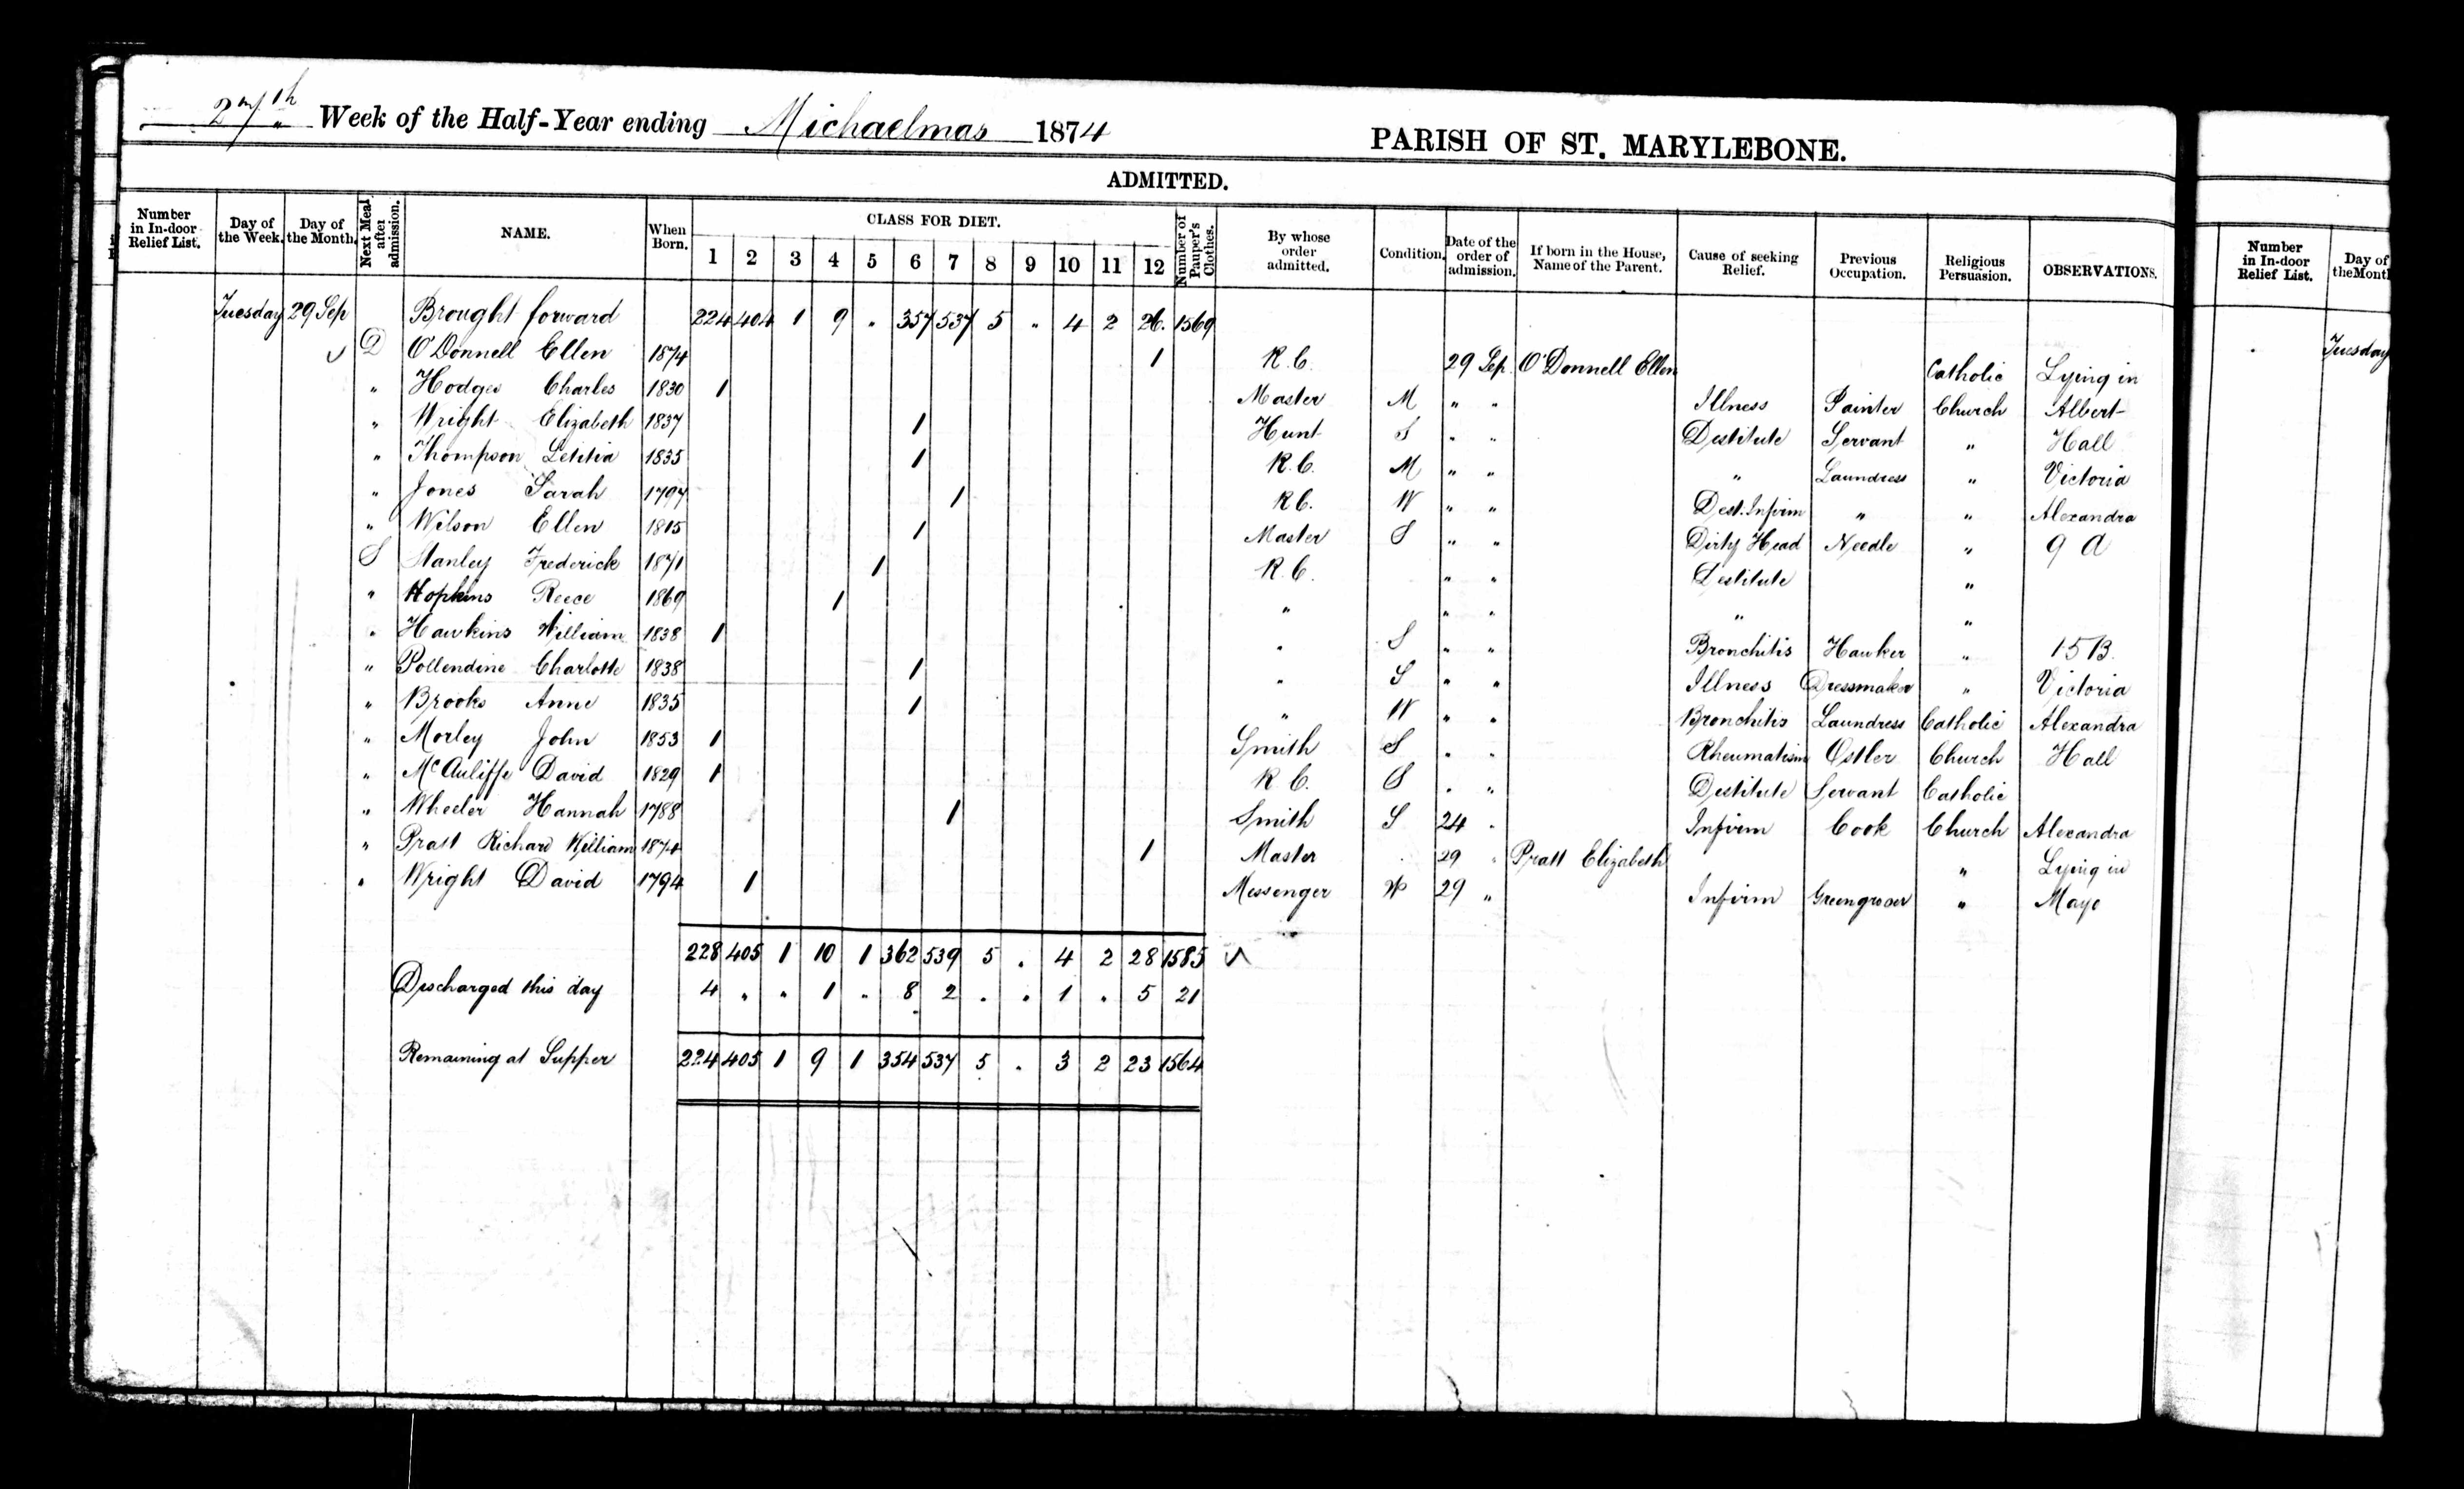 27th Week of the Half-Year ending Michaelmas 1874 PARISH OF ST. MARYLEBONE.
ADMITTED.
Number in In-door Relief List. Day of the Week. Day of the Month. Next Meal after admission. NAME. When Born. CLASS FOR DIET. 1 2 3 4 5 6 7 8 9 10 11 12 Number of Pauper's Clothes. By whose order admitted. Condition. Date of the order of admission. If born in the House, Name of the Parent. Cause of seeking Relief. Previous Occupation. Religious Persuasion. OBSERVATIONS. Number in In-door Relief List. Day of the Month
Tuesday 29 Sep Brought forward 224 404 1 9 " 357 537 5 " 4 2 26. 1569 Tuesday
D O'Donnell Ellen 1874 1 R. C. 29 Sep. O'Donnell Ellen Catholic Lying in
" Hodges Charles 1830 1 Master M " " Illness Painter Church Albert
" Wright Elizabeth 1837 1 Hunt S " " Destitute Servant " Hall
" Thompson Letitia 1835 1 R. C. M " " " Laundress " Victoria
" Jones Sarah 1797 1 R C. W " " Dest. Infirm " " Alexandra
" Wilson Ellen 1815 1 Master S " " Dirty Head Needle " 9 A
S Stanley Frederick 1871 1 R. C. " " Destitute "
" Hopkins Reece 1869 1 " " " " "
" Hawkins William 1838 1 " S " " Bronchitis Hawker " 15 B.
" Pollendine Charlotte 1838 1 " S " " Illness Dressmaker " Victoria
" Brooks Anne 1835 1 " W " " Bronchitis Laundress Catholic Alexandra
" Morley John 1853 1 Smith S " " Rheumatism Ostler Church Hall
" McAuliffe David 1829 1 R. C. S " " Destitute Servant Catholic
" Wheeler Hannah 1788 1 Smith S 24 " Infirm Cook Church Alexandra
" Pratt Richard William 1874 1 Master 29 " Pratt Elizabeth " Lying in
" Wright David 1794 1 Messenger W 29 " Infirm Greengrocer " Mayo
228 405 1 10 1 362 539 5 . 4 2 28 1585
Discharged this day 4 " " 1 " 8 2 . . 1 . 5 21
Remaining at Supper 224 405 1 9 1 354 537 5 . 3 2 23 1564